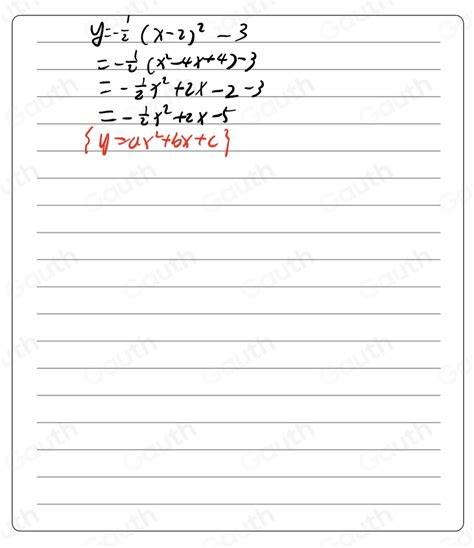 y=-1/2 (x-2)² - 3
= -1/2 (x²-4x+4)-3
= -1/2x²+2x-2-3
= -1/2x²+2x-5
{y=ax²+bx+c}
Gauth